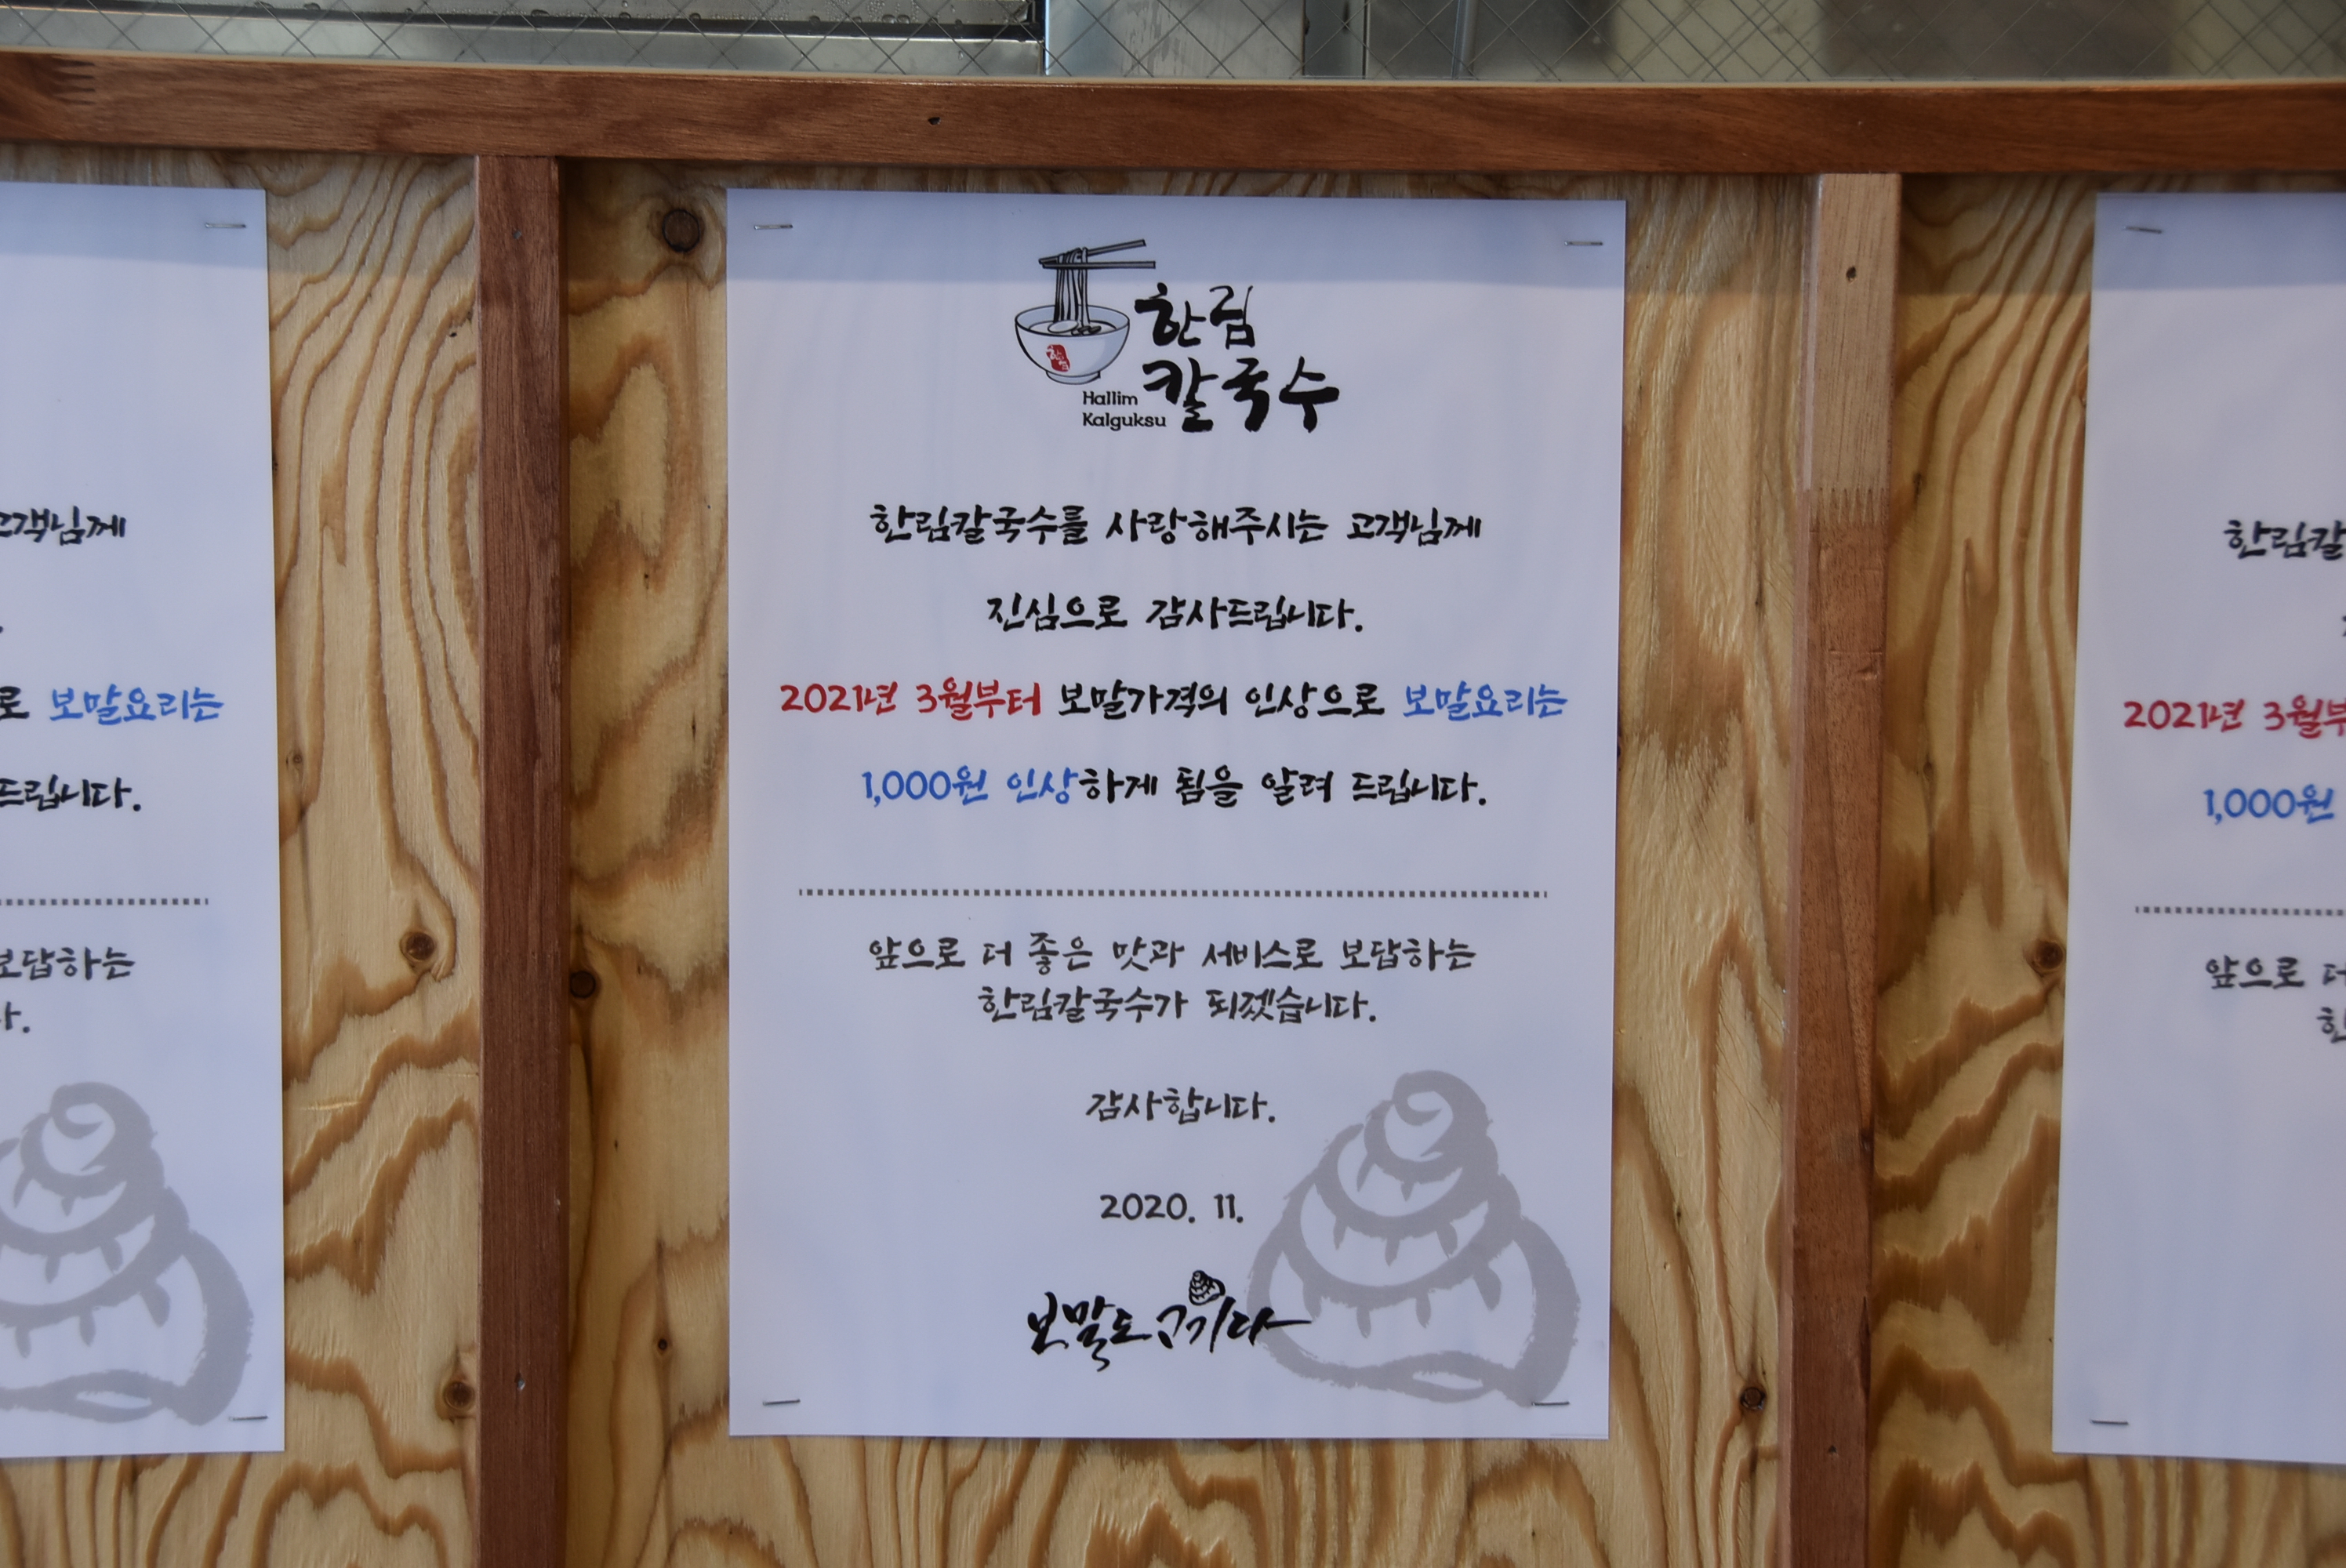 한림
칼국수
Hallim
Kalguksu
한림칼국수를 사랑해주시는 고객님께
진심으로 감사드립니다.
2021년 3월부터 보말가격의 인상으로 보말요리는
1,000원 인상하게 됨을 알려 드립니다.
앞으로 더 좋은 맛과 서비스로 보답하는
한림칼국수가 되겠습니다.
감사합니다.
2020. 11.
보말도 고기다
고객님께
로 보말요리는
드립니다.
보답하는
다.
한림칼
2021년 3월부
1,000원
앞으로 더
한